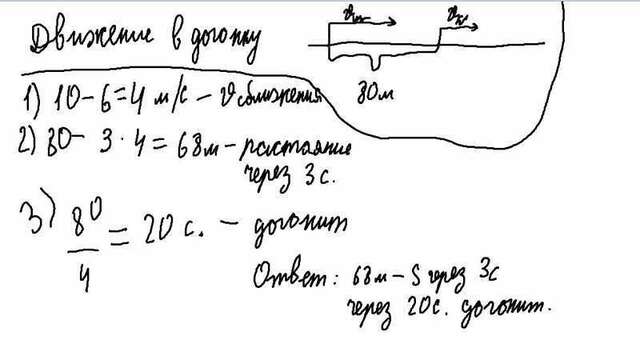 Движение в догонку
80м
1) 10-6=4 м/с - υ сближения
2) 80- 3·4=68м - расстояние
через 3с.
3) 80/4 = 20 с. - догонит
Ответ: 68м - S через 3с
через 20с. догонит.